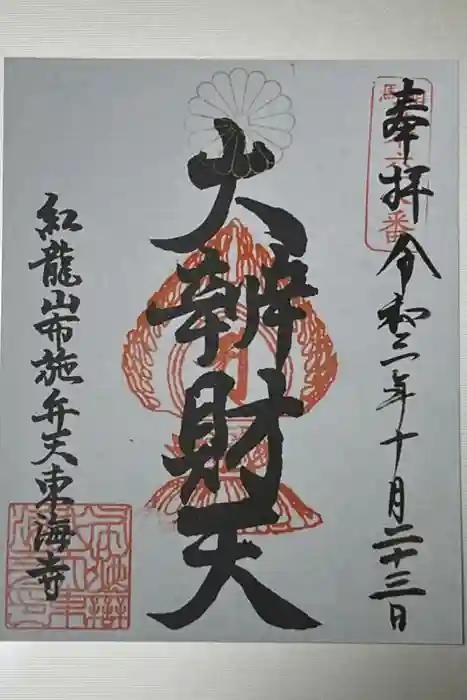 奉拝 令和二年十月二十三日
大辨財天
紅龍山布施弁天東海寺